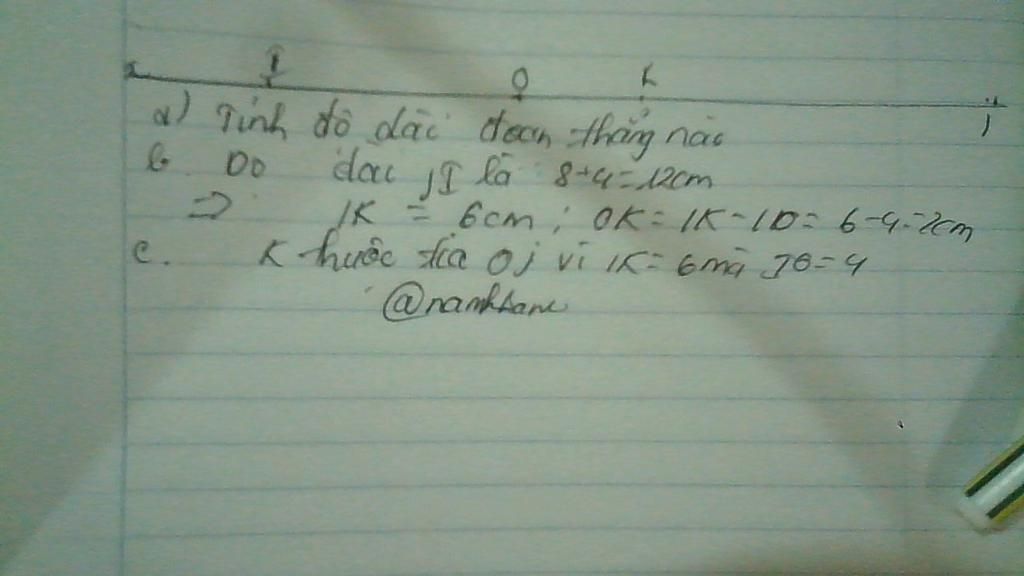 x I O K
J
a) Tính độ dài đoạn thẳng nào
b. Độ dài JI là 8+4=12cm
=> IK = 6cm; OK=IK-IO=6-4=2cm
c. K thuộc tia OJ vì IK=6 mà IO=4